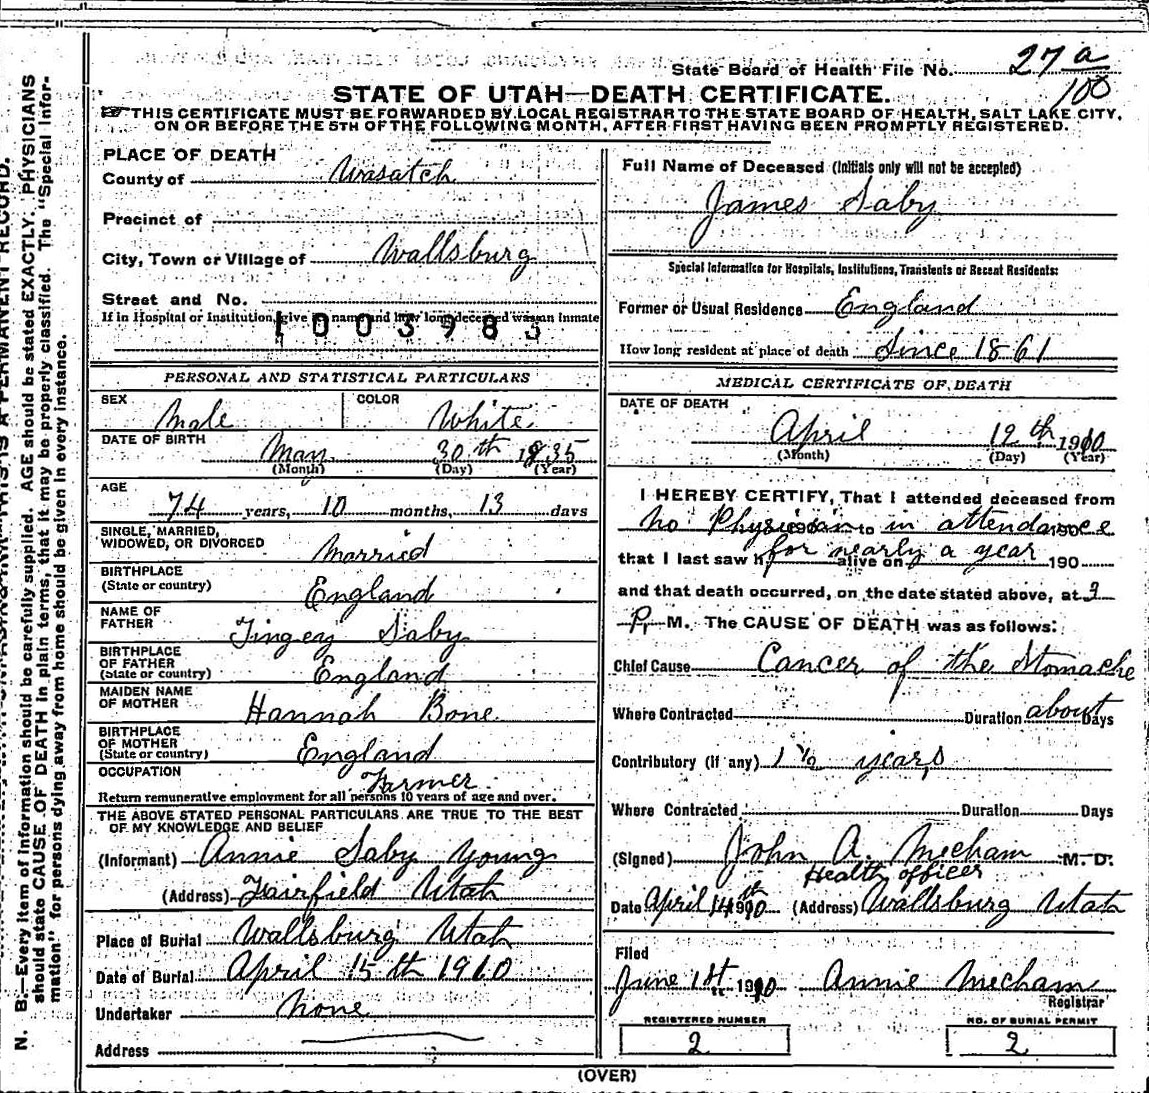 State Board of Health File No. 27 a
100
STATE OF UTAH—DEATH CERTIFICATE.
☞ THIS CERTIFICATE MUST BE FORWARDED BY LOCAL REGISTRAR TO THE STATE BOARD OF HEALTH, SALT LAKE CITY,
ON OR BEFORE THE 5TH OF THE FOLLOWING MONTH, AFTER FIRST HAVING BEEN PROMPTLY REGISTERED.
PLACE OF DEATH
County of Wasatch
Precinct of
City, Town or Village of Wallsburg
Street and No.
If in Hospital or Institution, give its name and how long deceased was an inmate
1003983
PERSONAL AND STATISTICAL PARTICULARS
SEX Male COLOR White
DATE OF BIRTH May 30th 1835
(Month) (Day) (Year)
AGE
74 years, 10 months, 13 days
SINGLE, MARRIED,
WIDOWED, OR DIVORCED Married
BIRTHPLACE
(State or country) England
NAME OF
FATHER Tingey Saby
BIRTHPLACE
OF FATHER
(State or country) England
MAIDEN NAME
OF MOTHER Hannah Bone
BIRTHPLACE
OF MOTHER
(State or country) England
OCCUPATION Farmer
Return remunerative employment for all persons 10 years of age and over.
THE ABOVE STATED PERSONAL PARTICULARS ARE TRUE TO THE BEST
OF MY KNOWLEDGE AND BELIEF
(Informant) Annie Saby Young
(Address) Fairfield Utah
Place of Burial Wallsburg Utah
Date of Burial April 15th 1910
Undertaker None
Address
Full Name of Deceased (Initials only will not be accepted)
James Saby
Special Information for Hospitals, Institutions, Transients or Recent Residents:
Former or Usual Residence England
How long resident at place of death Since 1861
MEDICAL CERTIFICATE OF DEATH
DATE OF DEATH
April 12th 1910
(Month) (Day) (Year)
I HEREBY CERTIFY, That I attended deceased from
No Physician to in attendance
that I last saw h for nearly a year alive on 190
and that death occurred, on the date stated above, at 3
P. M. The CAUSE OF DEATH was as follows:
Chief Cause Cancer of the Stomache
Where Contracted Duration about Days
Contributory (if any) 1 1/2 years
Where Contracted Duration Days
(Signed) John A. Mecham M. D.
Health officer
Date April 14th 1910 (Address) Wallsburg Utah
Filed
June 1st 1910 Annie Mecham
Registrar
REGISTERED NUMBER NO. OF BURIAL PERMIT
2 2
(OVER)
N. B.—Every item of information should be carefully supplied. AGE should be stated EXACTLY. PHYSICIANS
should state CAUSE OF DEATH in plain terms, that it may be properly classified. The "Special Infor-
mation" for persons dying away from home should be given in every instance.